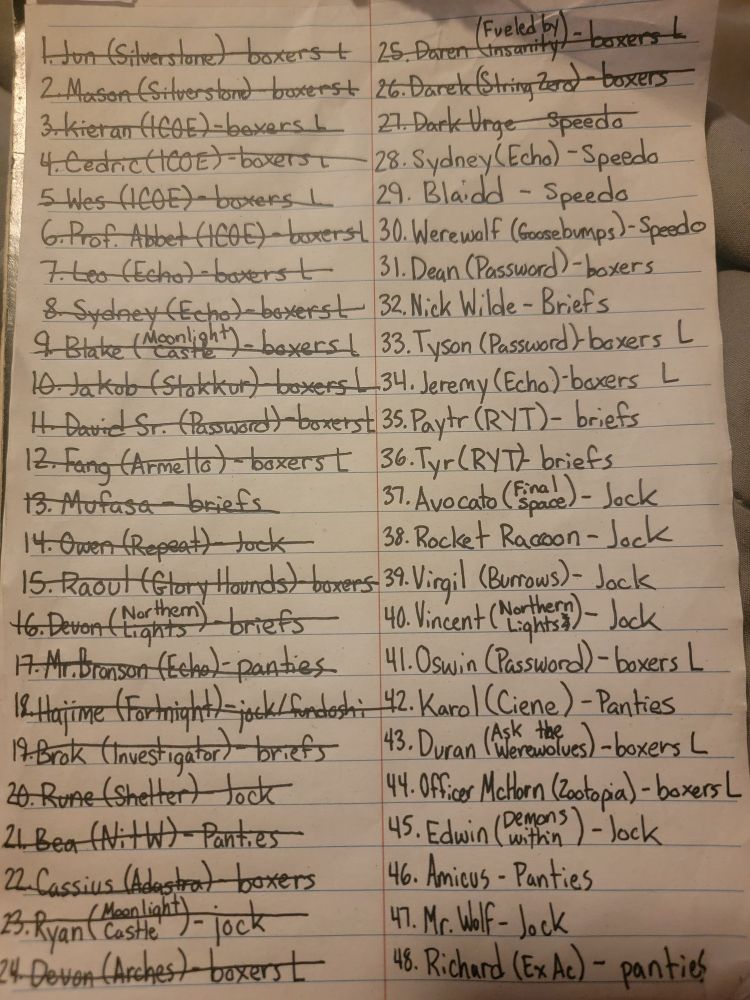 1. Jon (Silverstone) - boxers L
2. Mason (Silverstone) - boxers L
3. Kieran (ICOE) - boxers L
4. Cedric (ICOE) - boxers L
5 Wes (ICOE) - boxers L
6. Prof. Abbet (ICOE) - boxers L
7. Leo (Echo) - boxers L
8. Sydney (Echo) - boxers L
9. Blake (Moonlight Castle) - boxers L
10. Jakob (Stokkur) - boxers L
11. David Sr. (Password) - boxers L
12. Fang (Armello) - boxers L
13. Mufasa - briefs
14. Owen (Repeat) - Jock
15. Raoul (Glory Hounds) - boxers
16. Devon (Northern Lights) - briefs
17. Mr. Bronson (Echo) - panties
18. Hajime (Fortnight) - jock/fundoshi
19. Brok (Investigator) - briefs
20. Rune (Shelter) - Jock
21. Bea (NitW) - Panties
22. Cassius (Adastra) - boxers
23. Ryan (Moonlight Castle) - jock
24. Devon (Arches) - boxers L
25. Daren (Fueled by Insanity) - boxers L
26. Darek (String Zero) - boxers
27. Dark Urge Speedo
28. Sydney (Echo) - Speedo
29. Blaidd - Speedo
30. Werewolf (Goosebumps) - Speedo
31. Dean (Password) - boxers
32. Nick Wilde - Briefs
33. Tyson (Password) - boxers L
34. Jeremy (Echo) - boxers L
35. Paytr (RYT) - briefs
36. Tyr (RYT) - briefs
37. Avocato (Final Space) - Jock
38. Rocket Racoon - Jock
39. Virgil (Burrows) - Jock
40. Vincent (Northern Lights) - Jock
41. Oswin (Password) - boxers L
42. Karol (Ciene) - Panties
43. Duran (Ask the Werewolves) - boxers L
44. Officer McHorn (Zootopia) - boxers L
45. Edwin (Demons within) - Jock
46. Amicus - Panties
47. Mr. Wolf - Jock
48. Richard (Ex Ac) - panties